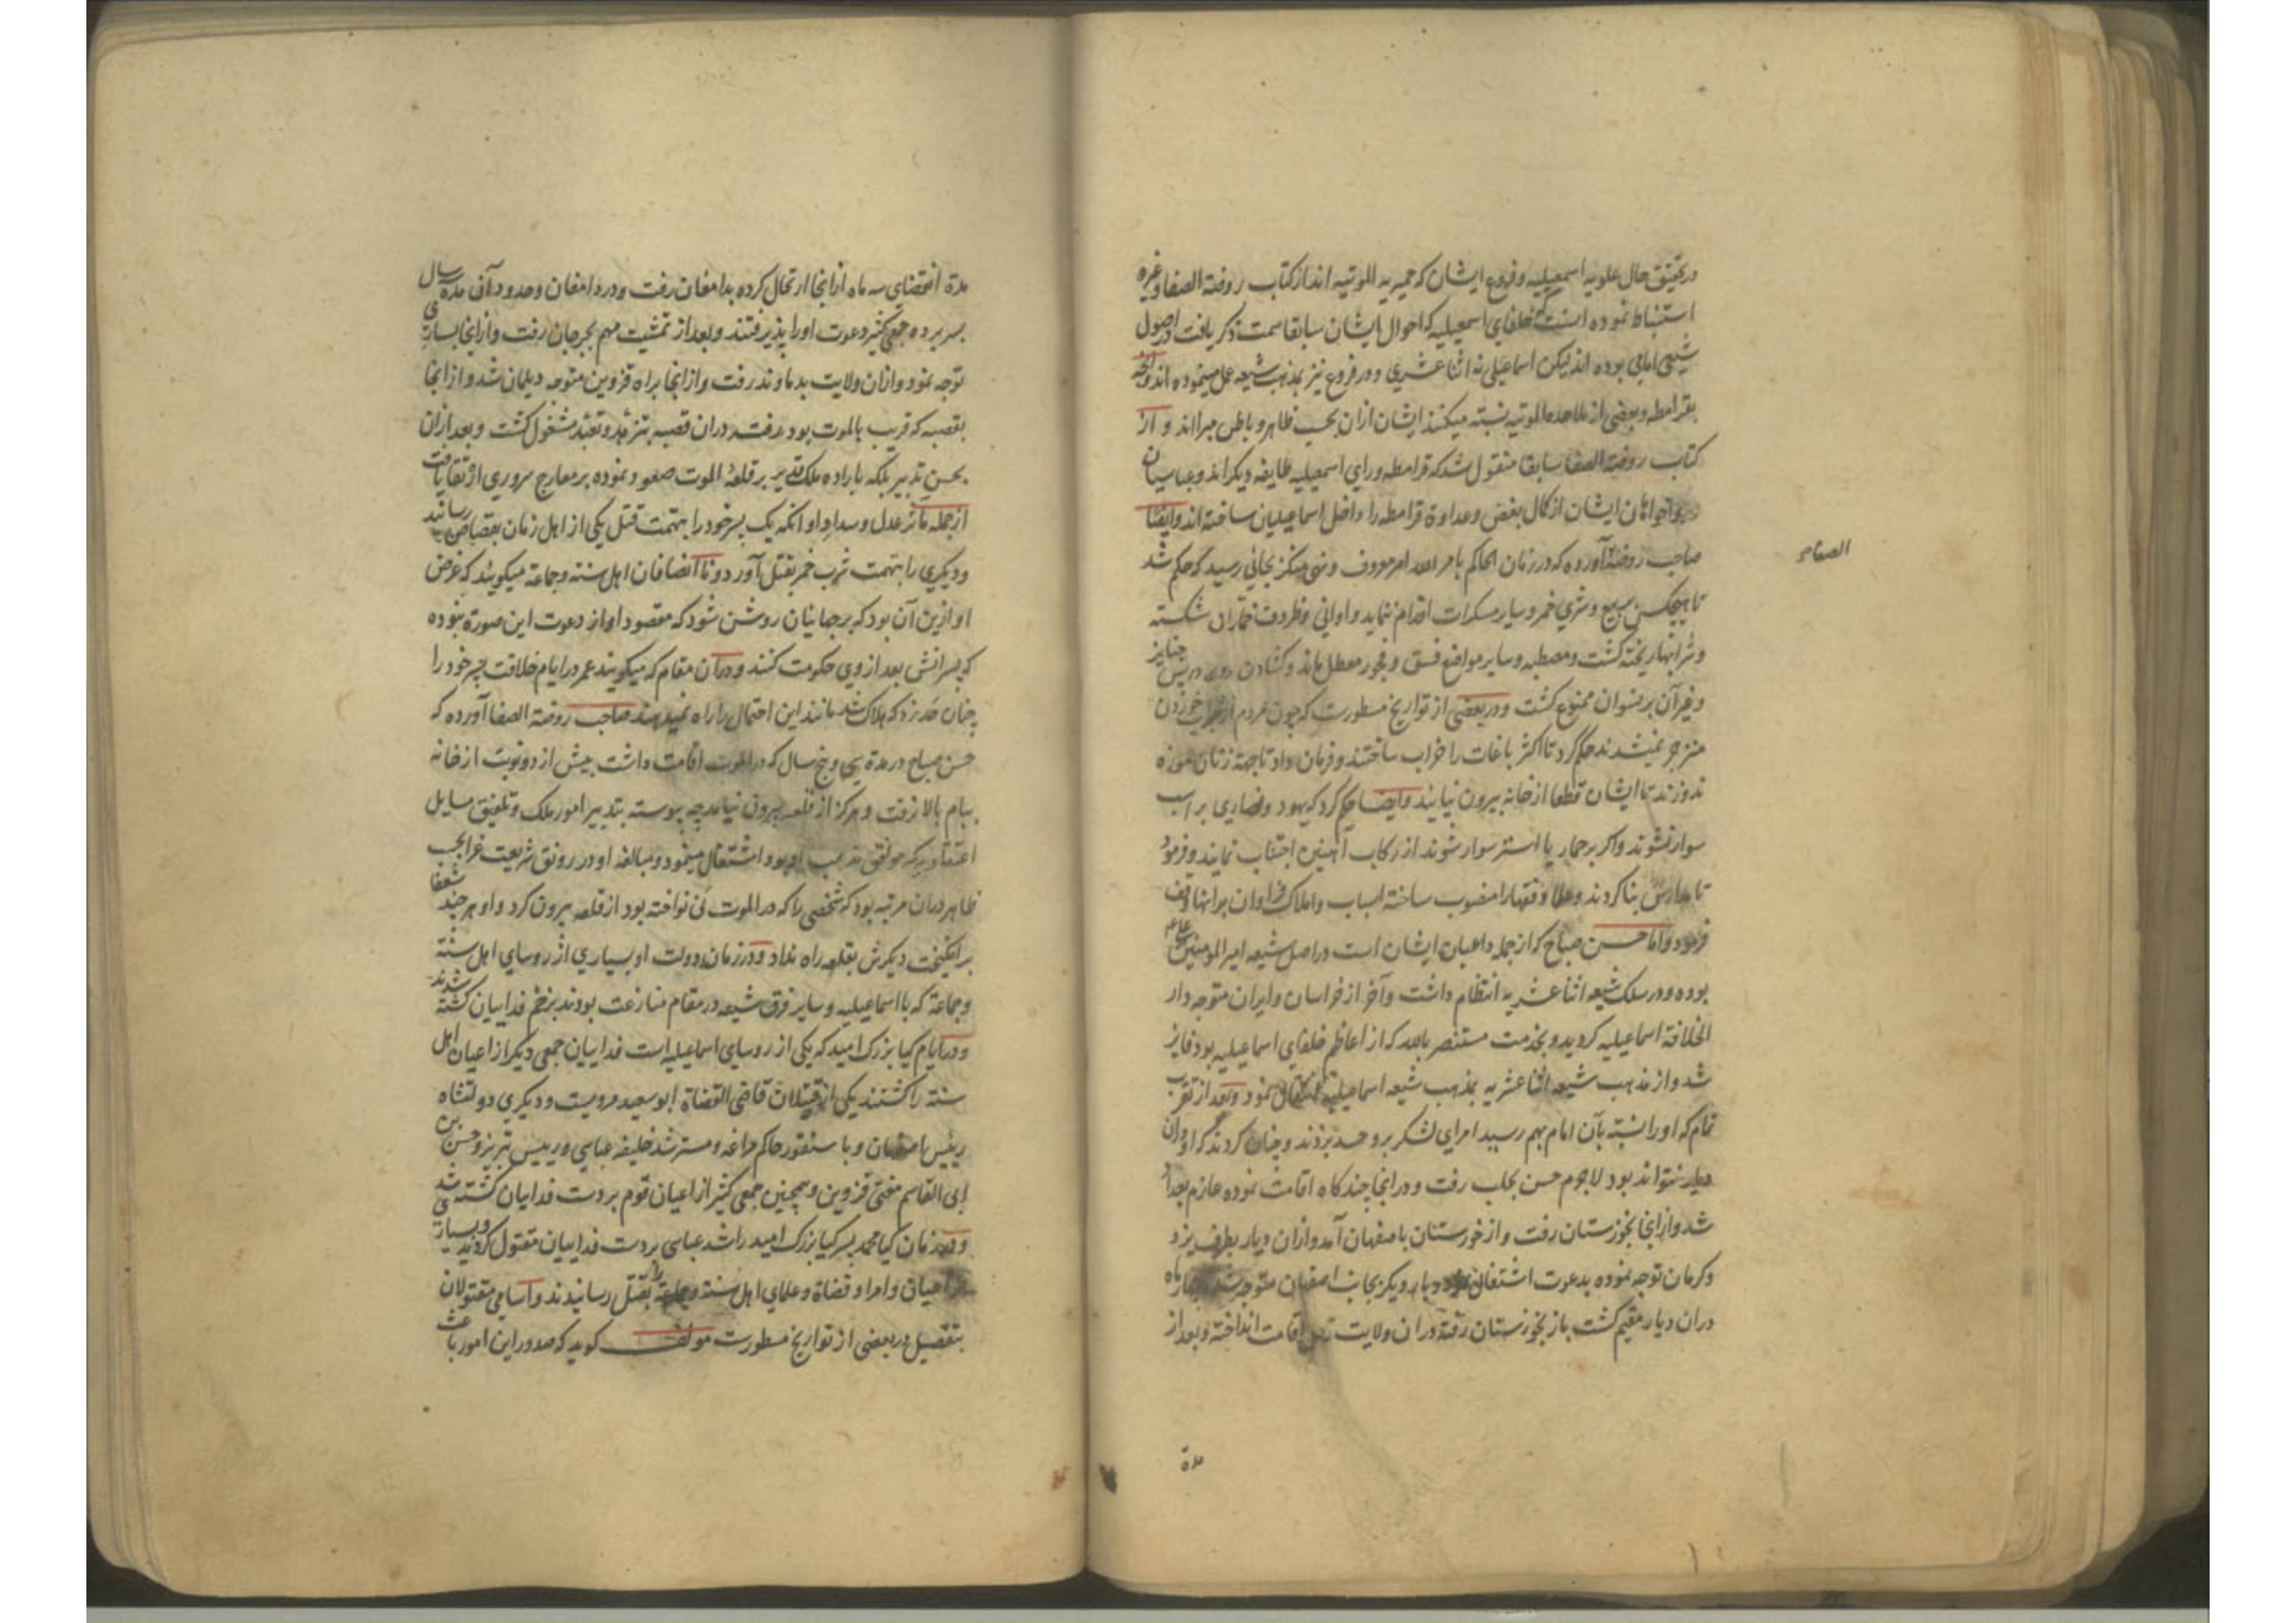 در تحقیق حال علویه اسمعیلیه و فروع ایشان که حمیریه الموتیه اند از کتاب روضة الصفا و غیره
استنباط نموده است که خلفای اسمعیلیه که احوال ایشان سابقا سمت ذکر یافت در اصول
شیعی امامی بوده اند لیکن اسماعیلی نه اثنا عشری و در فروع نیز بمذهب شیعه عمل مینموده اند و انچه
بقرامطه و بعضی از ملاحده الموتیه نسبته میکنند ایشان ازان بحسب ظاهر و باطن مبرااند و از
کتاب روضة الصفا سابقا منقول شد که قرامطه ورای اسمعیلیه طایفه دیکراند و عباسیان
و هواخواهان ایشان از کمال بغض و عداوة قرامطه را داخل اسماعیلیان ساخته اند و ایضا
صاحب روضة آورده که در زمان الحاکم بامر الله امر معروف و نهی منکر بجائی رسید که حکم شد
الصفا
تا هیچکس ببیع و شری خمر و سایر مسکرات اقدام ننماید و اوانی و ظروف خماران شکسته
و شرابها ریخته کشت و مصطبه و سایر مواضع فسق و فجور معطل ماند و کشادن روی در پس جنایز
و غیر آن بر نسوان ممنوع کشت و در بعضی از تواریخ مسطورست که چون مردم از شراب خوردن
منزجر نمیشدند حکم کرد تا اکثر باغات را خراب ساختند و فرمان داد تا جهة زنان موزه
ندوزند تا ایشان قطعا از خانه بیرون نیایند و ایضا حکم کرد که یهود و نصاری بر اسب
سوار نشوند و اکر بر حمار یا استر سوار شوند از رکاب آهنین اجتناب نمایند و فرمود
تا مدارس بنا کردند و علما و فقها را منصوب ساخته اسباب و املاک فراوان بر انها وقف
فرمود و اما حسن صباح که از جمله داعیان ایشان است در اصل شیعه امیر المومنین
بوده و در سلک شیعه اثنا عشریه انتظام داشت و آخر از خراسان و ایران متوجه دار
الخلافة اسماعیلیه کردید و بخدمت مستنصر بالله که از اعاظم خلفای اسماعیلیه بود فایز
شد و از مذهب شیعه اثنا عشریه بمذهب شیعه اسماعیلیه انتقال نمود و بعد از تقرب
تمام که او را نسبته بآن امام بهم رسید امرای لشکر برو حسد بردند و چنان کردند که او دران
دیار نتواند بود لاجرم حسن بحلب رفت و در انجا چند کاه اقامت نموده عازم بغداد
شد و از انجا بخوزستان رفت و از خوزستان باصفهان آمد و ازان دیار بطرف یزد
و کرمان توجه نموده بدعوت اشتغال نمود و بار دیکر بجانب اصفهان متوجه شد چهار ماه
دران دیار مقیم کشت باز بخوزستان رفته دران ولایت رحل اقامت انداخته و بعد از
مدة
مدة انقضای سه ماه از انجا ارتحال کرده بدامغان رفت و در دامغان و حدود آن مدة سه سال
بسر برده جمعی کثیر دعوت اورا پذیرفتند و بعد از تمشیت مهم بجرجان رفت و از انجا بساری
توجه نمود و ازان ولایت بدماوند رفت و از انجا براه قزوین متوجه دیلمان شد و از انجا
بقصبه که قریب بالموت بود رفت دران قصبه بتزهد و تعبد مشغول کشت و بعد ازان
بحسن تدبیر بلکه باراده ملک قدیر بر قلعهٔ الموت صعود نموده بر معارج سروری ارتقا یافت
از جمله مآثر عدل و سداد او انکه یک پسر خود را بتهمت قتل یکی از اهل زمان بقصاص رسانید
و دیکری را بتهمت شرب خمر بقتل آورد و نا انصافان اهل سنة و جماعة میکویند که غرض
او ازین آن بود که بر جهانیان روشن شود که مقصود او از دعوت این صورة نبوده
که پسرانش بعد از وی حکومت کنند و درآن مقام که میکویند عمر در ایام خلافت پسر خود را
چنان حد زد که هلاک شد مانند این احتمال را راه نمیدهند صاحب روضة الصفا آورده که
حسن صباح در مدة سی و پنج سال که در الموت اقامت داشت بیش از دو نوبت از خانه
ببام بالا نرفت و هرکز از قلعه بیرون نیامد چه پیوسته بتدبیر امور ملک و تلفیق مسایل
اعتقادیه که موافق مذهب او بود اشتغال مینمود و مبالغه او در رونق شریعت غرا بحسب
ظاهر دران مرتبه بود که شخصی را که در الموت نی نواخته بود از قلعه بیرون کرد و او هر چند شفعا
برانکیخت دیکرش بقلعه راه نداد و در زمان دولت او بسیاری از روسای اهل سنة
و جماعة که با اسماعیلیه و سایر فرق شیعه در مقام منازعت بودند بزخم فداییان کشته شدند
و در ایام کیا بزرک امید که یکی از روسای اسماعیلیه است فداییان جمعی دیکر از اعیان اهل
سنة را کشتند یکی از قتیلان قاضی القضاة ابو سعید هرویست و دیکری دولتشاه
رییس اصفهان و با سنقور حاکم مراغه و مسترشد خلیفه عباسی و رییس تبریز و حسن بن
ابی القاسم مفتی قزوین و همچنین جمعی کثیر از اعیان قوم بر دست فداییان کشته شد
و در زمان کیا محمد پسر کیا بزرک امید راشد عباسی بر دست فداییان مقتول کردید و بسیاری
از اعیان و امرا و قضاة و علمای اهل سنة و جماعة را بقتل رسانیدند و اسامی مقتولان
بتفصیل در بعضی از تواریخ مسطورست مولف کوید که صدور این امور باعث